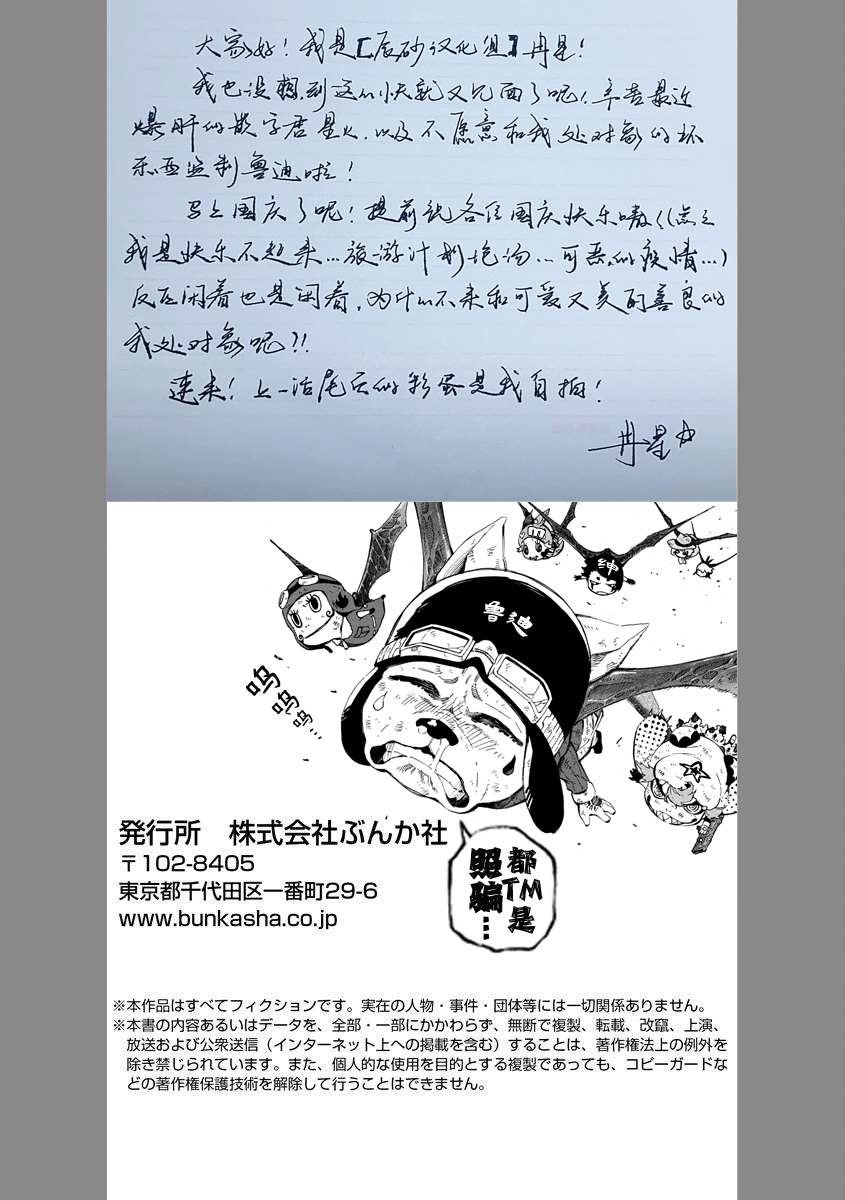 大家好！我是【辰砂汉化组】冉星！
我也没想到这么快就又见面了呢！辛苦最近
爆肝的嵌字君星火，以及不愿意和我处对象的坏
东西监制鲁迪啦！
马上国庆了呢！提前祝各位国庆快乐嗷（（总之
我是快乐不起来…旅游计划泡汤…可恶的疫情…）
反正闲着也是闲着，为什么不来和可爱又美丽善良的
我处对象呢？！
速来！上一话尾页的彩蛋是我自拍！
冉星
绅
鲁迪
呜、呜呜呜…
都TM是
照骗……
発行所　株式会社ぶんか社
〒102-8405
東京都千代田区一番町29-6
www.bunkasha.co.jp
※本作品はすべてフィクションです。実在の人物・事件・団体等には一切関係ありません。
※本書の内容あるいはデータを、全部・一部にかかわらず、無断で複製、転載、改竄、上演、
放送および公衆送信（インターネット上への掲載を含む）することは、著作権法上の例外を
除き禁じられています。また、個人的な使用を目的とする複製であっても、コピーガードな
どの著作権保護技術を解除して行うことはできません。